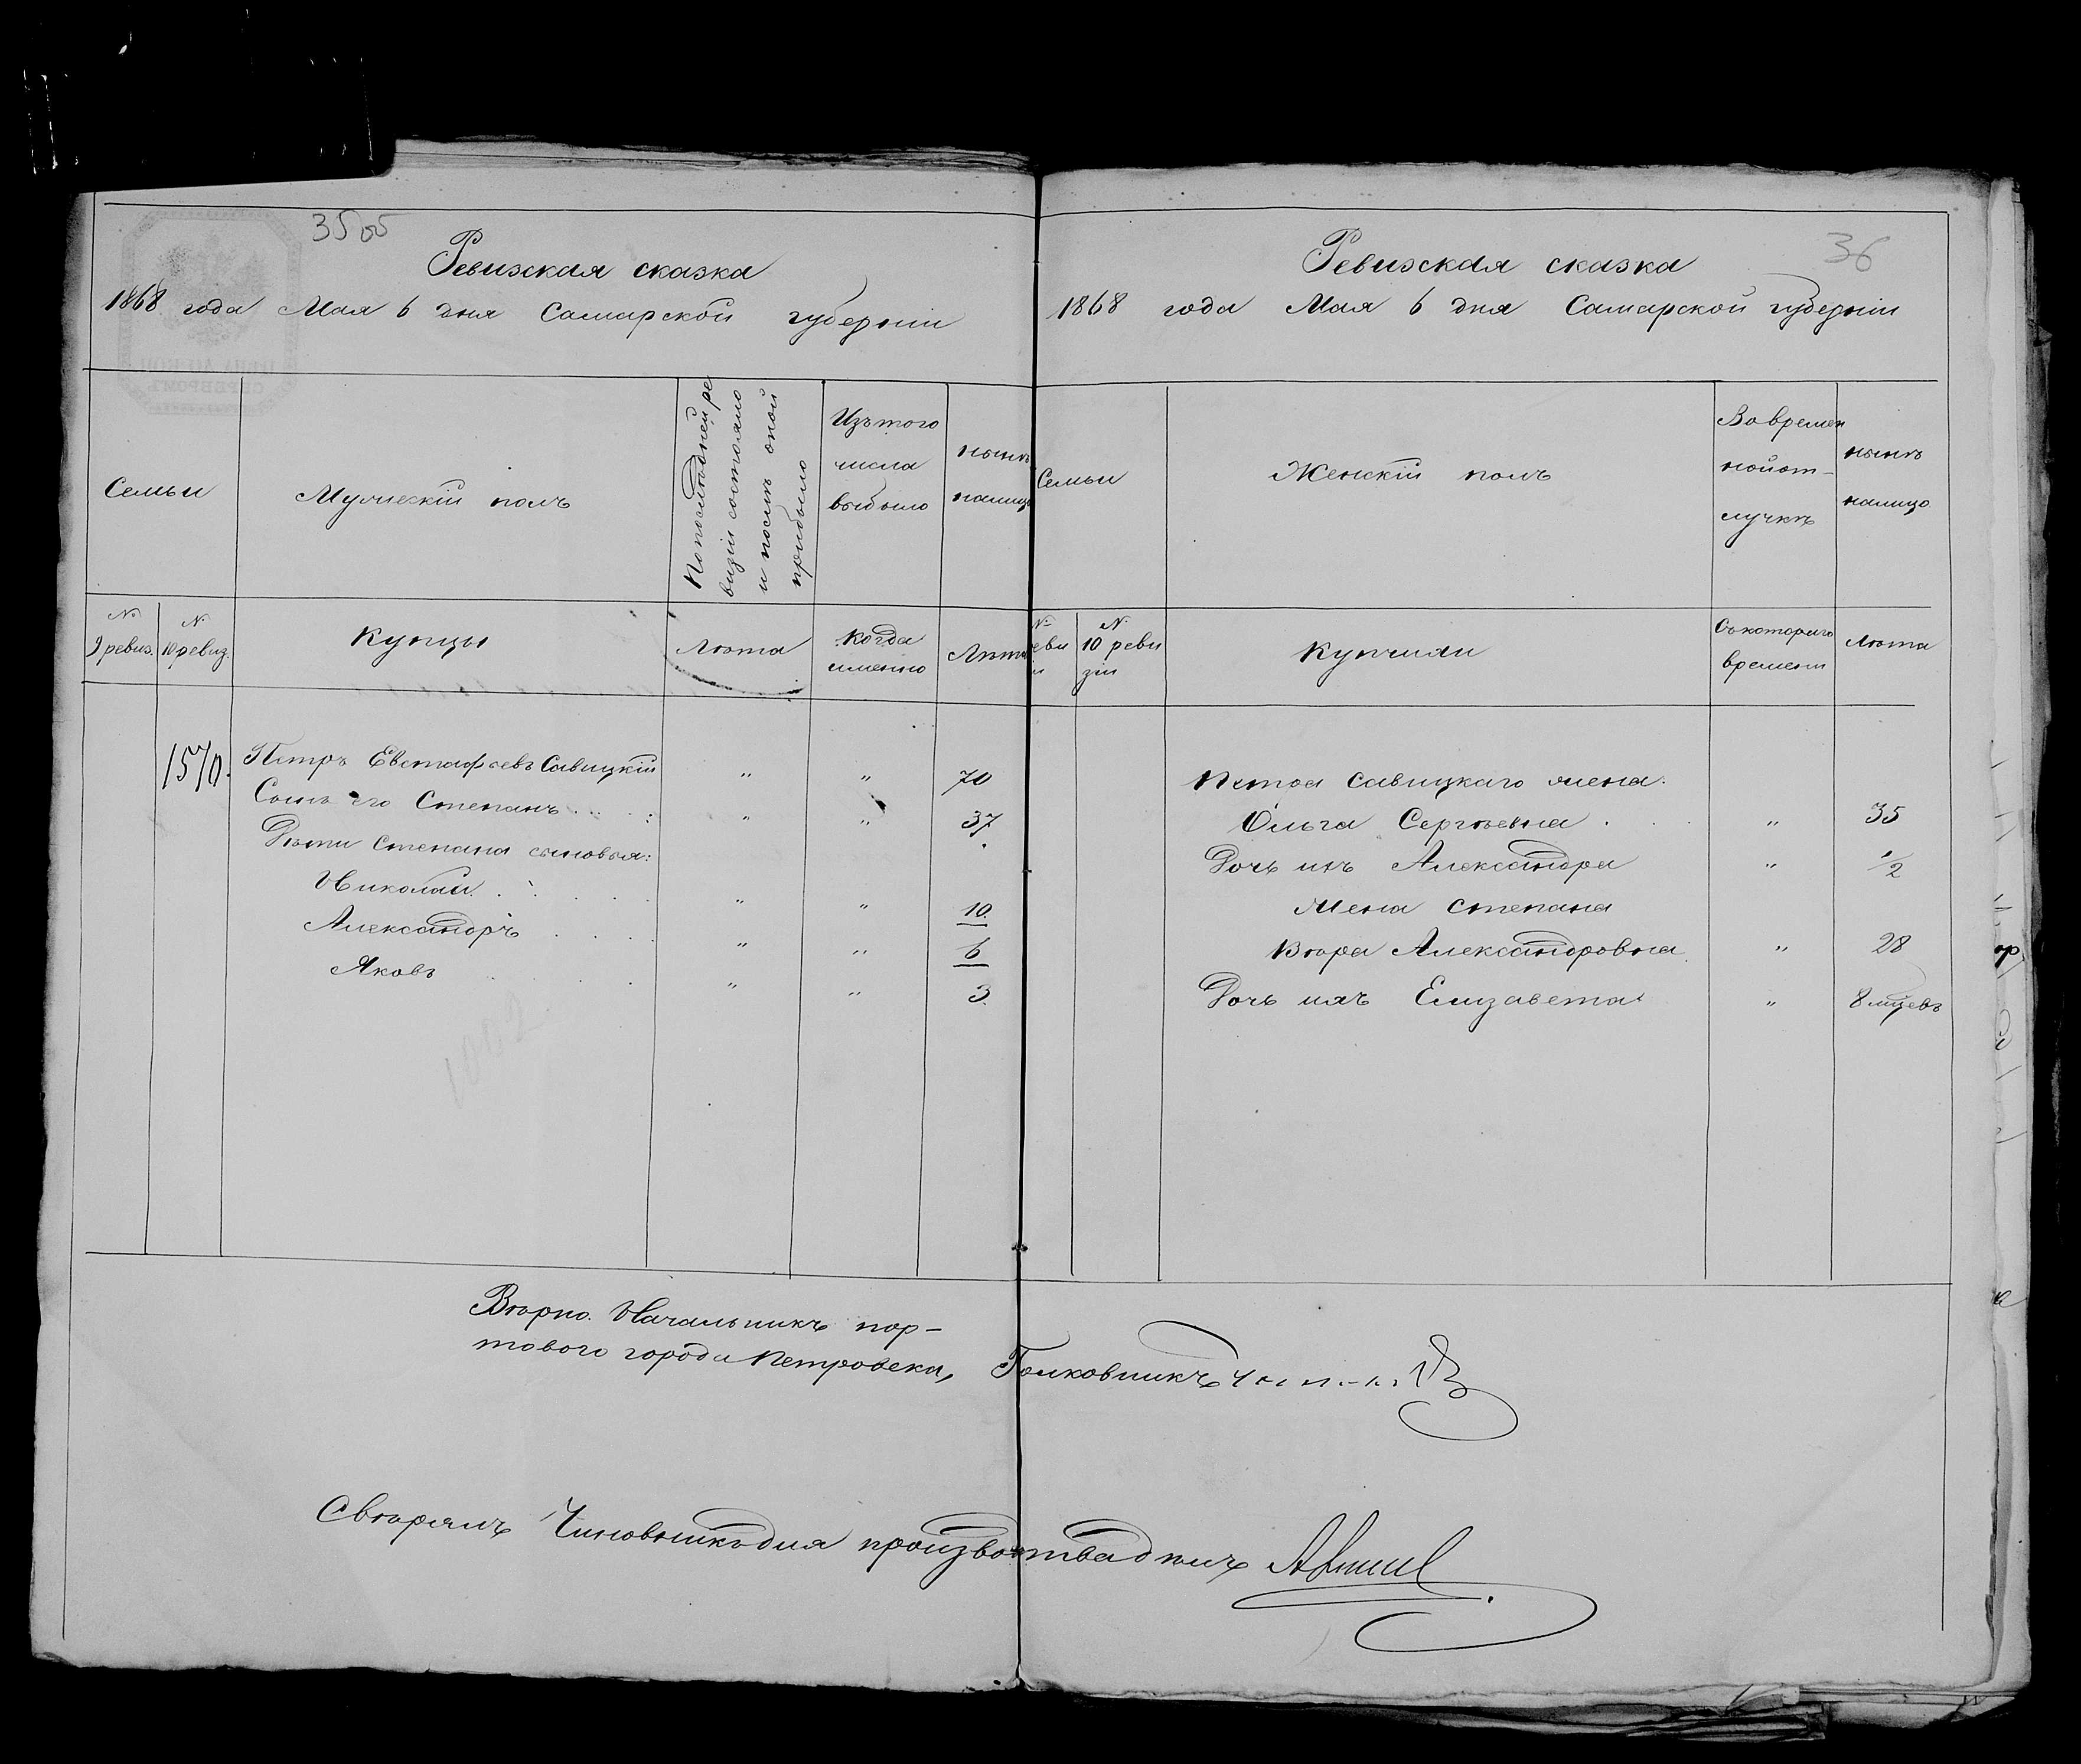 35об
Ревизская сказка
1868 года Мая 6 дня Самарской губерніи
Семьи
Мужескій полъ
По последней ре
визіи состояло
и послѣ оной
прибыло
Изъ того
числа
выбыло
нынѣ
налицо
№
9 ревиз.
№
10 ревиз.
Купцы
Лѣта
Когда
именно
Лѣта
1570.
Петръ Евстафьевъ Савицкій " " 70
Сынъ его Степанъ " " 37
Дѣти Степана сыновья:
Николай " " 10
Александръ " " 6
Яковъ " " 3
Вѣрно. Начальникъ пор-
тового города Петровска, Полковникъ
Свѣрялъ Чиновникъ для производства дѣлъ
36
Ревизская сказка
1868 года Мая 6 дня Самарской губерніи
Семьи
Женскій полъ
Во времен
ной от-
лучкѣ
нынѣ
налицо
№
еви
и
№
10 реви
зіи
Купчихи
Съ котораго
времени
Лѣта
Петра Савицкаго жена.
Ольга Сергѣевна " 35
Дочь ихъ Александра " 1/2
Жена Степана
Вѣра Александровна " 28
Дочь ихъ Елизавета " 8 мцевъ